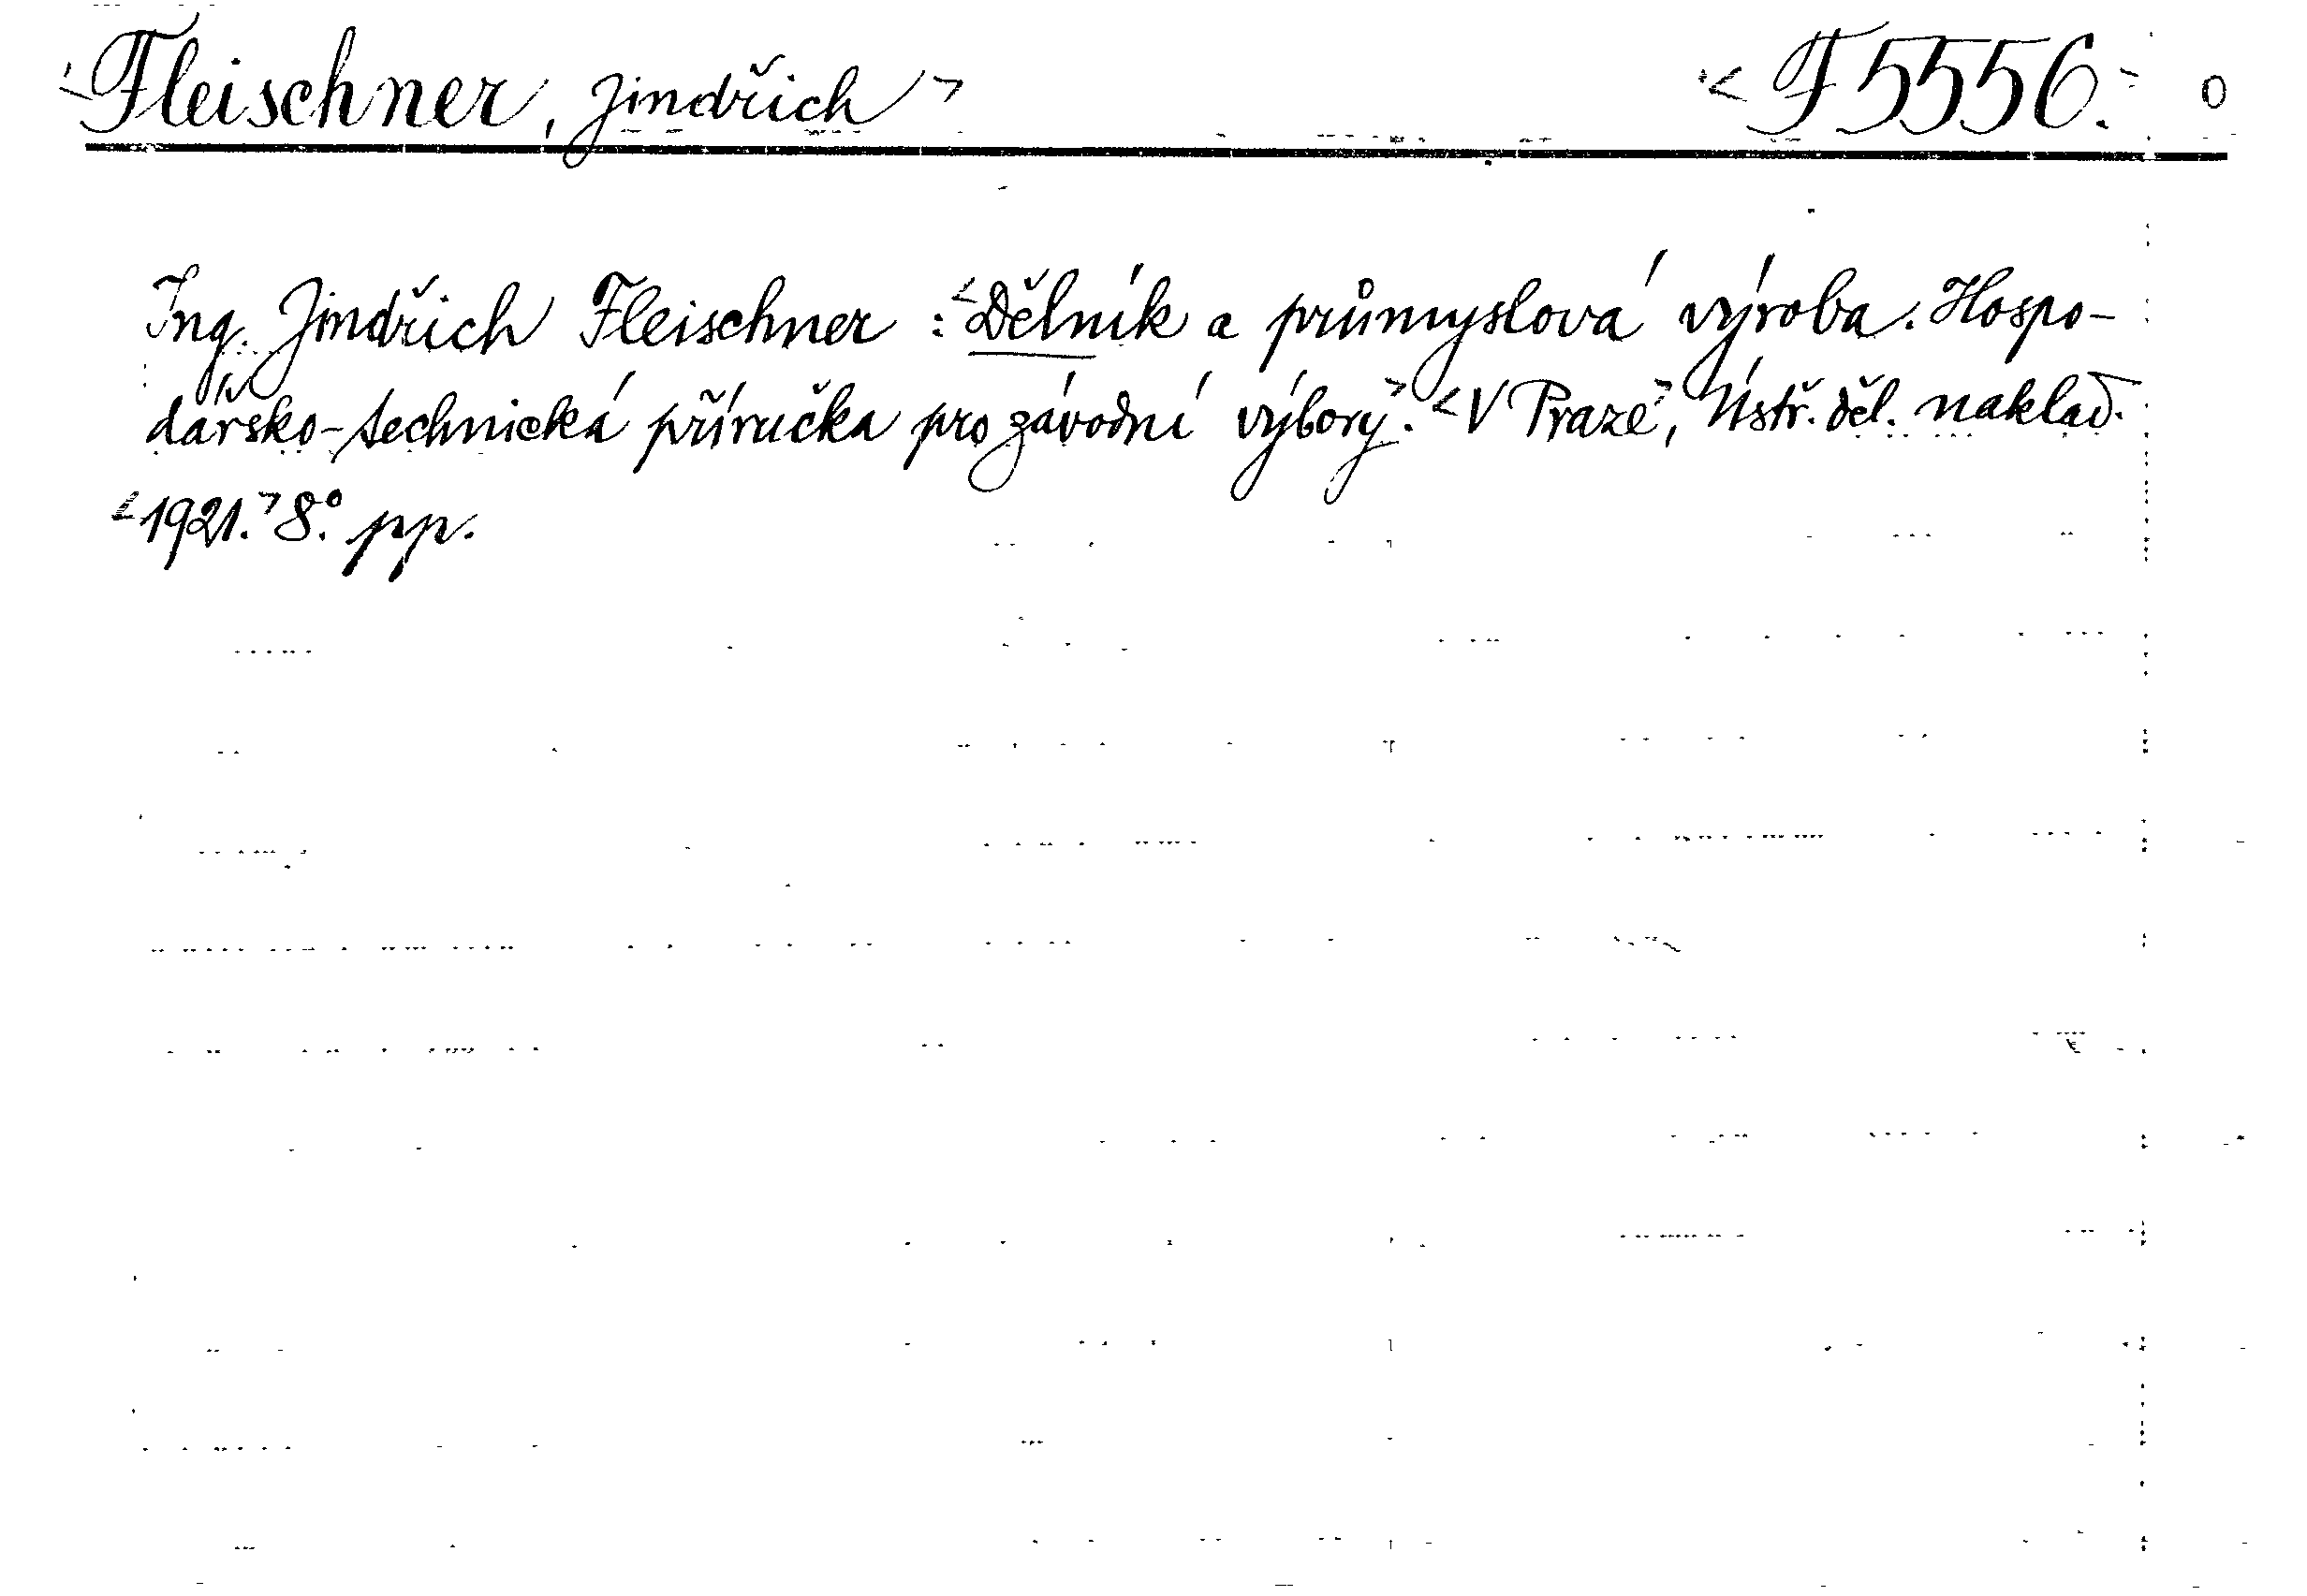 <Fleischner, Jindřich> <F 5556.> 0
Ing. Jindřich Fleischner : <Dělník a průmyslová výroba. Hospo-
dářsko-technická příručka pro závodní výbory>. <V Praze>, Ústř. děl. naklad.
<1921.> 8°. pp.